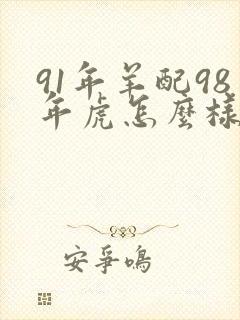 91年羊配98
年虎怎麽樣
安爭鳴